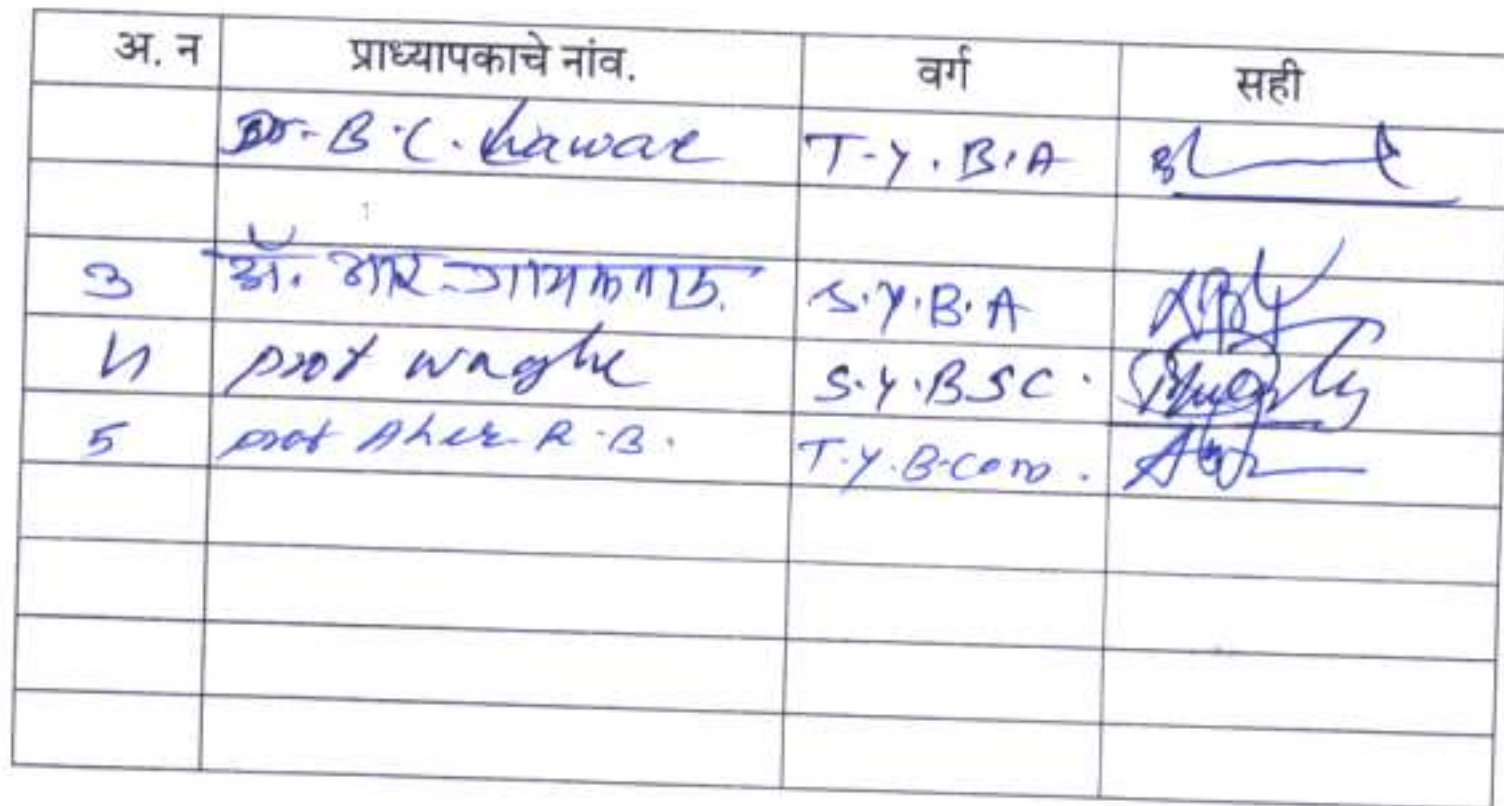 अ. न प्राध्यापकाचे नांव. वर्ग सही
Dr. B.C. T.Y.B.A
3 डॉ. आर. गायकवाड. S.Y.B.A
prof waghe S.Y.BSC.
5 prof Aher R.B. T.Y.B.com.